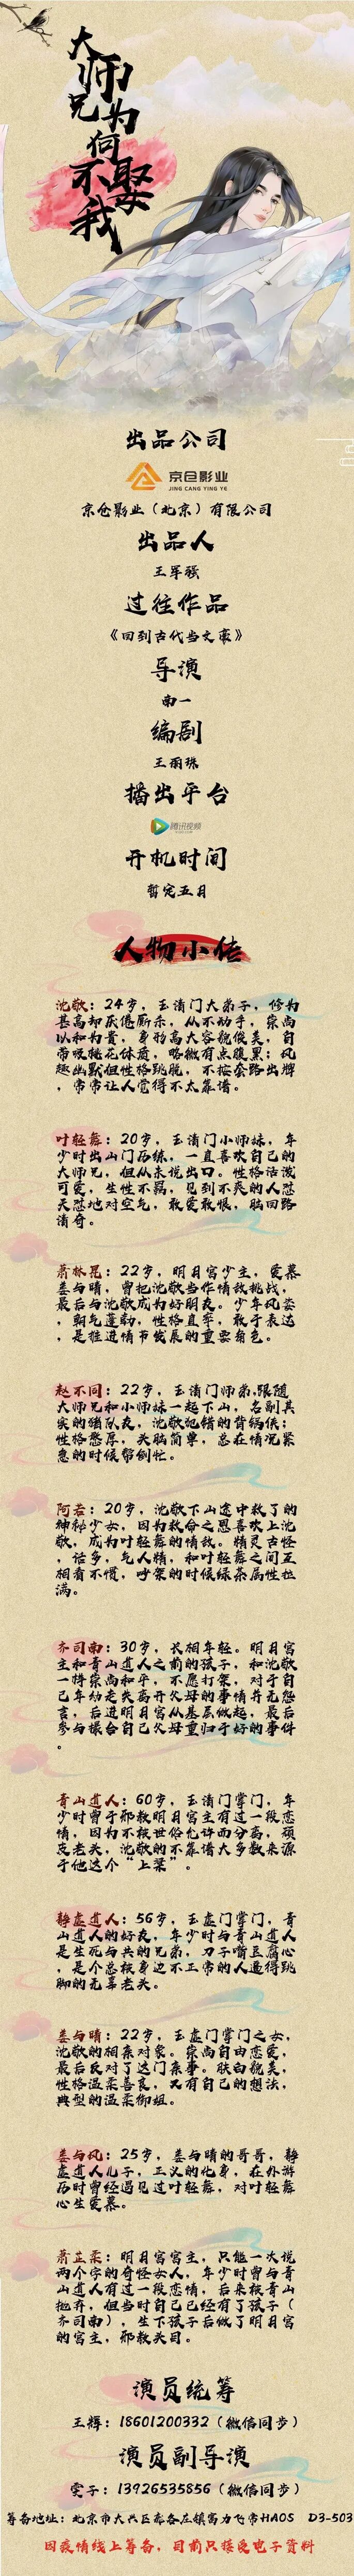 大师兄为何不娶我
出品公司
京仓影业
JING CANG YING YE
京仓影业（北京）有限公司
出品人
王军强
过往作品
《回到古代当文豪》
导演
南一
编剧
王丽珠
播出平台
腾讯视频
开机时间
暂定五月
人物小传
沈敬：24岁，玉清门大弟子，修为
甚高却厌倦厮杀，从不动手，崇尚
以和为贵，身形高大容貌俊美，自
带吸桃花体质，略微有点腹黑；风
趣幽默但性格跳脱，不按套路出牌
，常常让人觉得不太靠谱。
叶轻舞：20岁，玉清门小师妹，年
少时出山门历练，一直喜欢自己的
大师兄，但从未说出口。性格活泼
可爱，生性不羁，见到不爽的人怼
天怼地对空气，敢爱敢恨，脑回路
清奇。
萧林昆：22岁，明月宫少主，爱慕
娄与晴，曾把沈敬当作情敌挑战，
最后与沈敬成为好朋友。少年风姿
，朝气蓬勃，性格直率，敢于表达
，是推进情节发展的重要角色。
赵不同：22岁，玉清门师弟，跟随
大师兄和小师妹一起下山，名副其
实的猪队友，沈敬犯错的背锅侠；
性格憨厚，头脑简单，总在情况紧
急的时候帮倒忙。
阿若：20岁，沈敬下山途中救了的
神秘少女，因为救命之恩喜欢上沈
敬，成为叶轻舞的情敌。精灵古怪
，话多，气人精，和叶轻舞之间互
相看不惯，吵架的时候绿茶属性拉
满。
齐司南：30岁，长相年轻。明月宫
主和青山道人之前的孩子，和沈敬
一样崇尚和平，不愿打架，对于自
己年幼走失离开父母的事情并无怨
言，后进明月宫从基层做起，最后
参与撮合自己父母重归于好的事件
。
青山道人：60岁，玉清门掌门，年
少时曾于邪教明月宫主有过一段恋
情，因为不被世俗允许而分离，顽
皮老头，沈敬的不靠谱大多数来源
于他这个“上梁”。
静虚道人：56岁，玉虚门掌门，青
山道人的好友，年少时与青山道人
是生死与共的兄弟，刀子嘴豆腐心
，是个总被身边不正常的人逼得跳
脚的无辜老头。
娄与晴：22岁，玉虚门掌门之女，
沈敬的相亲对象。崇尚自由恋爱，
最后反对了这门亲事。肤白貌美，
性格温柔善良，又有自己的想法，
典型的温柔御姐。
娄与风：25岁，娄与晴的哥哥，静
虚道人儿子，正义的化身，在外游
历时曾经遇见过叶轻舞，对叶轻舞
心生爱慕。
萧芷柔：明月宫宫主，只能一次说
两个字的奇怪女人，年少时曾与青
山道人有过一段恋情，后来被青山
抛弃，但当时自己已经有了孩子（
齐司南），生下孩子后做了明月宫
的宫主，邪教头目。
演员统筹
王辉：18601200332（微信同步）
演员副导演
雯子：13926535856（微信同步）
筹备地址：北京市大兴区庞各庄镇富力飞帝HAOS D3-503
因疫情线上筹备，目前只接受电子资料